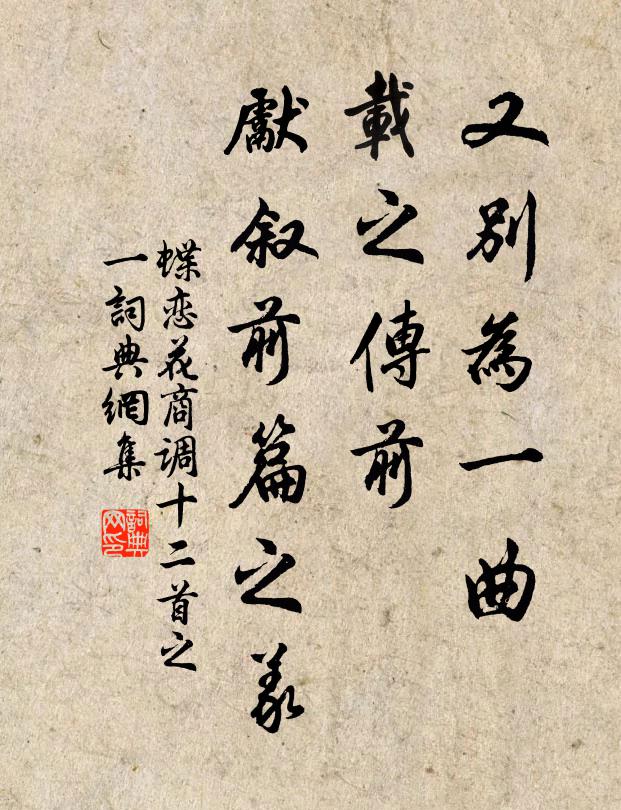 又別為一曲
載之傳前
獻叙前篇之義
蝶恋花商调十二首之
一詞典網集
詞典
网印